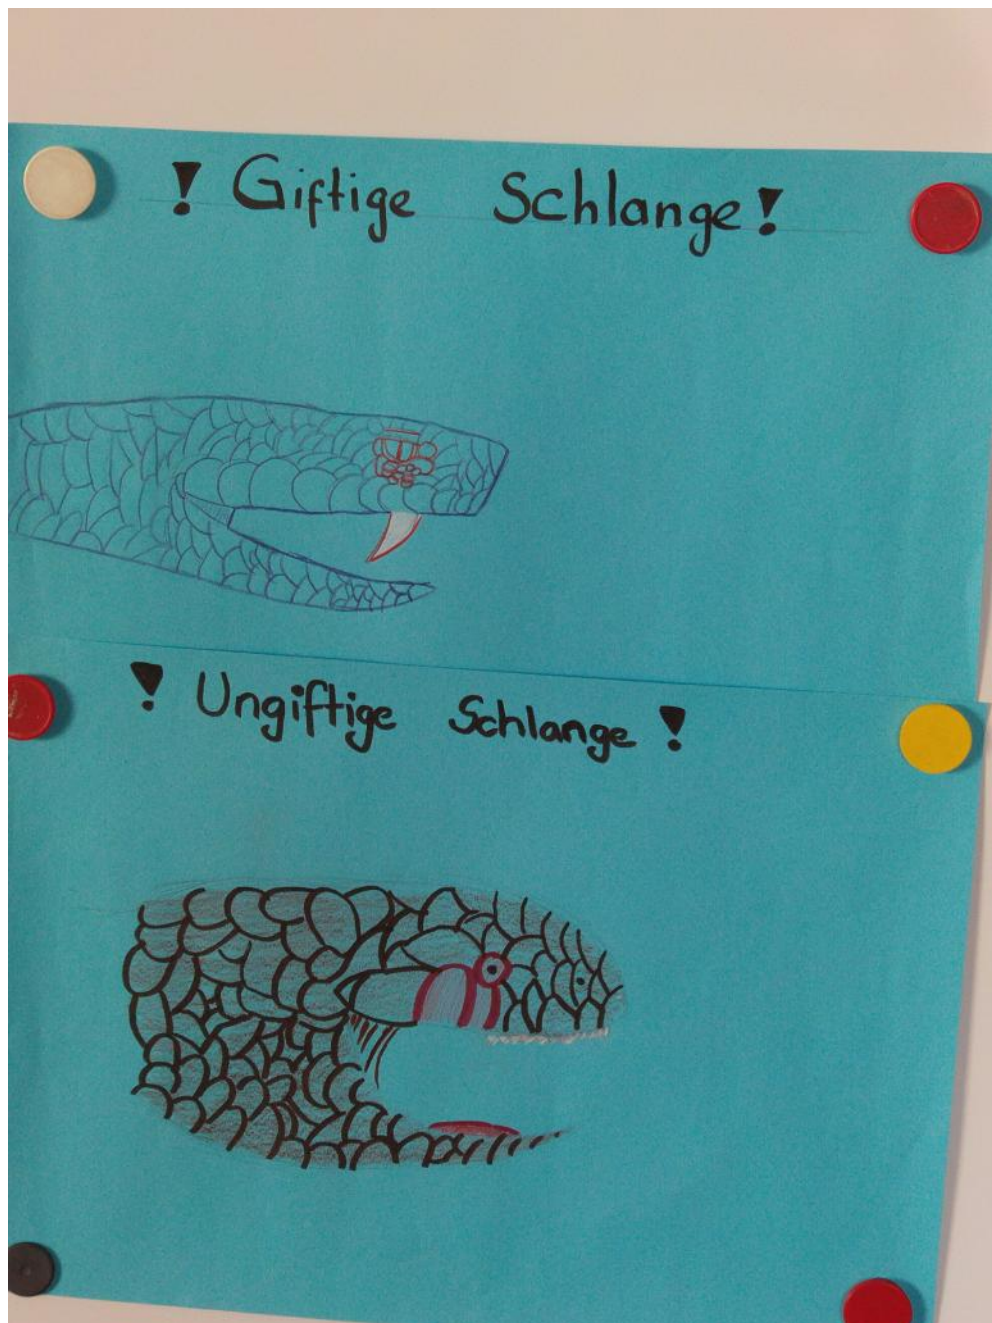 ! Giftige Schlange!
! Ungiftige Schlange !